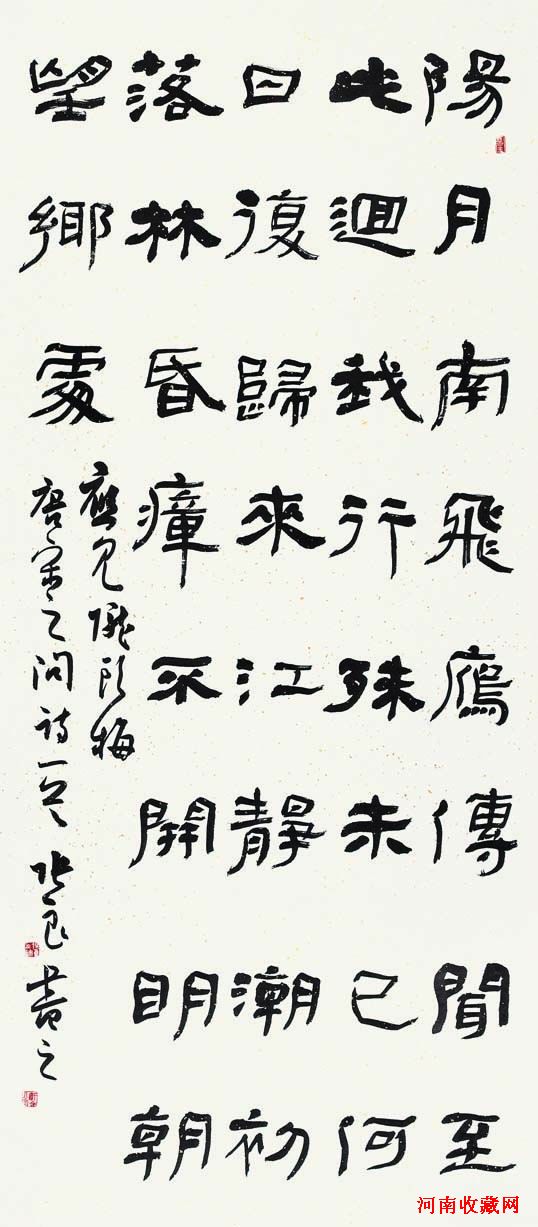 陽月南飛鴈傳聞至
此迴我行殊未已何
日復歸來江靜潮初
落林昏瘴不開明朝
望鄉處
應見隴頭梅
唐宋之問詩一首 張良書之
河南收藏网